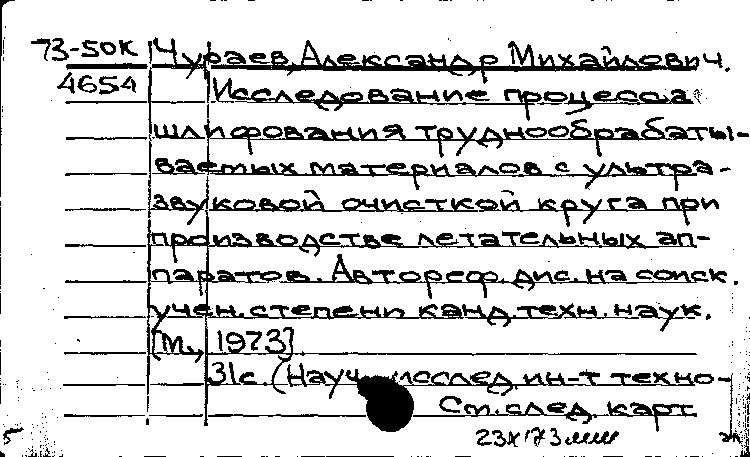 73-50К Чураев, Александр Михайлович.
4654 Исследование процесса
шлифования труднообрабаты-
ваемых материалов с ультра-
звуковой очисткой круга при
производстве летательных ап-
паратов. Автореф. дис. на соиск.
учен. степени канд. техн. наук.
[М., 1973].
31с. (Науч.-исслед. ин-т техно-
См. след. карт.
23X'73